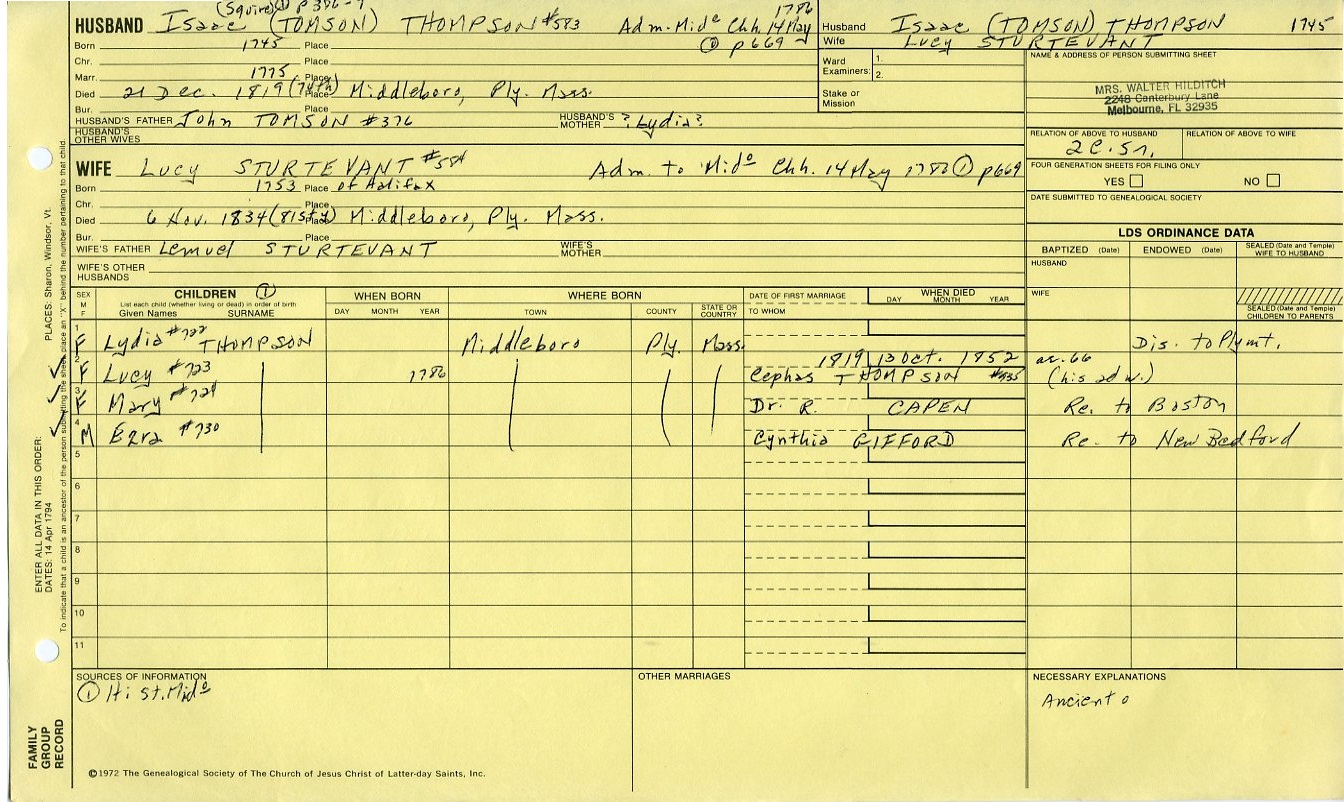 (Squire) ① p 386-7
HUSBAND Isaac (TOMSON) THOMPSON #583 Adm. Mido Chh. 14 May 1786
① p669
Born 1745 Place
Chr. Place
Marr. 1775 Place
Died 21 Dec. 1819 (74th) Place Middleboro, Ply. Mass.
Bur. Place
HUSBAND'S FATHER John TOMSON #376 HUSBAND'S MOTHER ?Lydia?
HUSBAND'S OTHER WIVES
Husband Isaac (TOMSON) THOMPSON 1745
Wife Lucy STURTEVANT
Ward Examiners: 1.
2.
Stake or Mission
NAME & ADDRESS OF PERSON SUBMITTING SHEET
MRS. WALTER HILDITCH
2248 Canterbury Lane
Melbourne, FL 32935
RELATION OF ABOVE TO HUSBAND RELATION OF ABOVE TO WIFE
2C.5r.
FOUR GENERATION SHEETS FOR FILING ONLY
YES NO
DATE SUBMITTED TO GENEALOGICAL SOCIETY
WIFE Lucy STURTEVANT #584 Adm. to Mido Chh. 14 May 1786 ① p669
Born 1753 Place of Halifax
Chr. Place
Died 6 Nov. 1834 (81st y) Place Middleboro, Ply. Mass.
Bur. Place
WIFE'S FATHER Lemuel STURTEVANT WIFE'S MOTHER
WIFE'S OTHER HUSBANDS
LDS ORDINANCE DATA
BAPTIZED (Date) ENDOWED (Date) SEALED (Date and Temple) WIFE TO HUSBAND
HUSBAND
WIFE
SEALED (Date and Temple) CHILDREN TO PARENTS
SEX M F CHILDREN ① List each child (whether living or dead) in order of birth Given Names SURNAME
WHEN BORN DAY MONTH YEAR
WHERE BORN TOWN COUNTY STATE OR COUNTRY
DATE OF FIRST MARRIAGE TO WHOM
WHEN DIED DAY MONTH YEAR
1 F Lydia #722 THOMPSON Middleboro Ply. Mass. Dis. to Plymt.
2 F Lucy #723 1786 1819 13 Oct. 1852 ae. 66
Cephas THOMPSON #735 (his 2d w.)
3 F Mary #724 Dr. R. CAPEN Re. to Boston
4 M Ezra #730 Cynthia GIFFORD Re. to New Bedford
5
6
7
8
9
10
11
SOURCES OF INFORMATION
① Hist. Mido
OTHER MARRIAGES
NECESSARY EXPLANATIONS
Ancient o
©1972 The Genealogical Society of The Church of Jesus Christ of Latter-day Saints, Inc.
FAMILY GROUP RECORD
ENTER ALL DATA IN THIS ORDER:
DATES: 14 Apr 1794
PLACES: Sharon, Windsor, Vt.
To indicate that a child is an ancestor of the person submitting the sheet, place an "X" behind the number pertaining to that child.